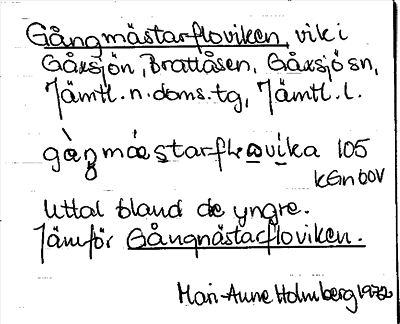 Gångmästarfloviken, vik i
Gåxsjön, Brattåsen, Gåxsjö sn,
Jämtl. n. doms. tg, Jämtl. l.
105
kGnbov
Uttal bland de yngre.
Jämför Gångnästacfloviken.
Mari-Anne Holmberg 1972